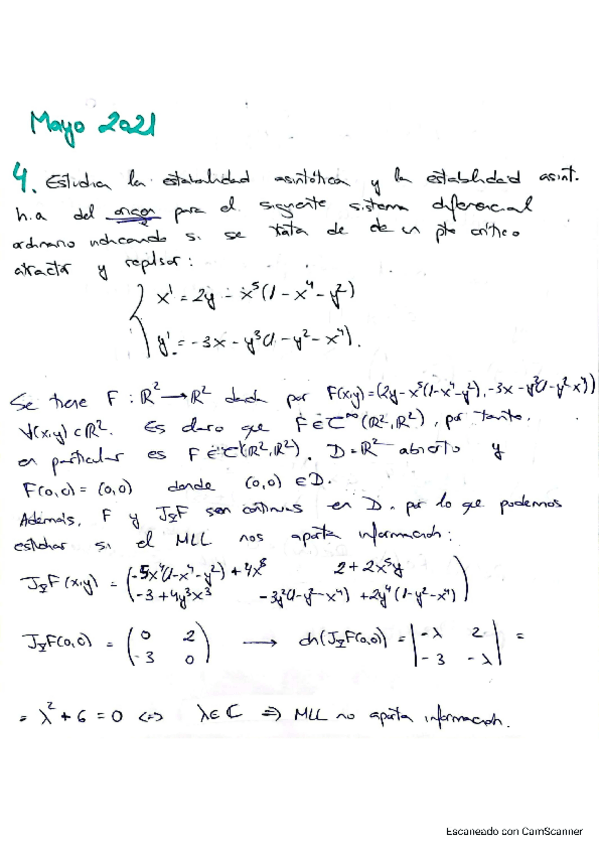 Mayo 2021
4. Estudia la estabilidad asintótica y la estabilidad asint.
h.a del origen para el siguiente sistema diferencial
ordinario indicando si se trata de de un pto crítico
atractor y repulsor:
{ x' = 2y - x⁵(1 - x⁴ - y²)
y' = -3x - y³(1 - y² - x⁴).
Se tiene F : ℝ² → ℝ² dada por F(x,y) = (2y - x⁵(1-x⁴-y²), -3x - y³(1-y²-x⁴))
∀(x,y) ⊂ ℝ². Es claro que F ∈ C^∞(ℝ²,ℝ²), por tanto,
en particular es F ∈ C¹(ℝ²,ℝ²). D = ℝ² abierto y
F(0,0) = (0,0) donde (0,0) ∈ D.
Además, F y J_x F son continuas en D, por lo que podemos
estudiar si el MLL nos aporta información:
J_x F(x,y) = ( -5x⁴(1-x⁴-y²) + 4x⁸ 2 + 2x⁵y
-3 + 4y³x³ -3y²(1-y²-x⁴) + 2y⁴(1-y²-x⁴) )
J_x F(0,0) = ( 0 2 ; -3 0 ) → ch(J_x F(0,0)) = | -λ 2 ; -3 -λ | =
= λ² + 6 = 0 ⟺ λ ∈ ℂ ⟹ MLL no aporta información.
Escaneado con CamScanner